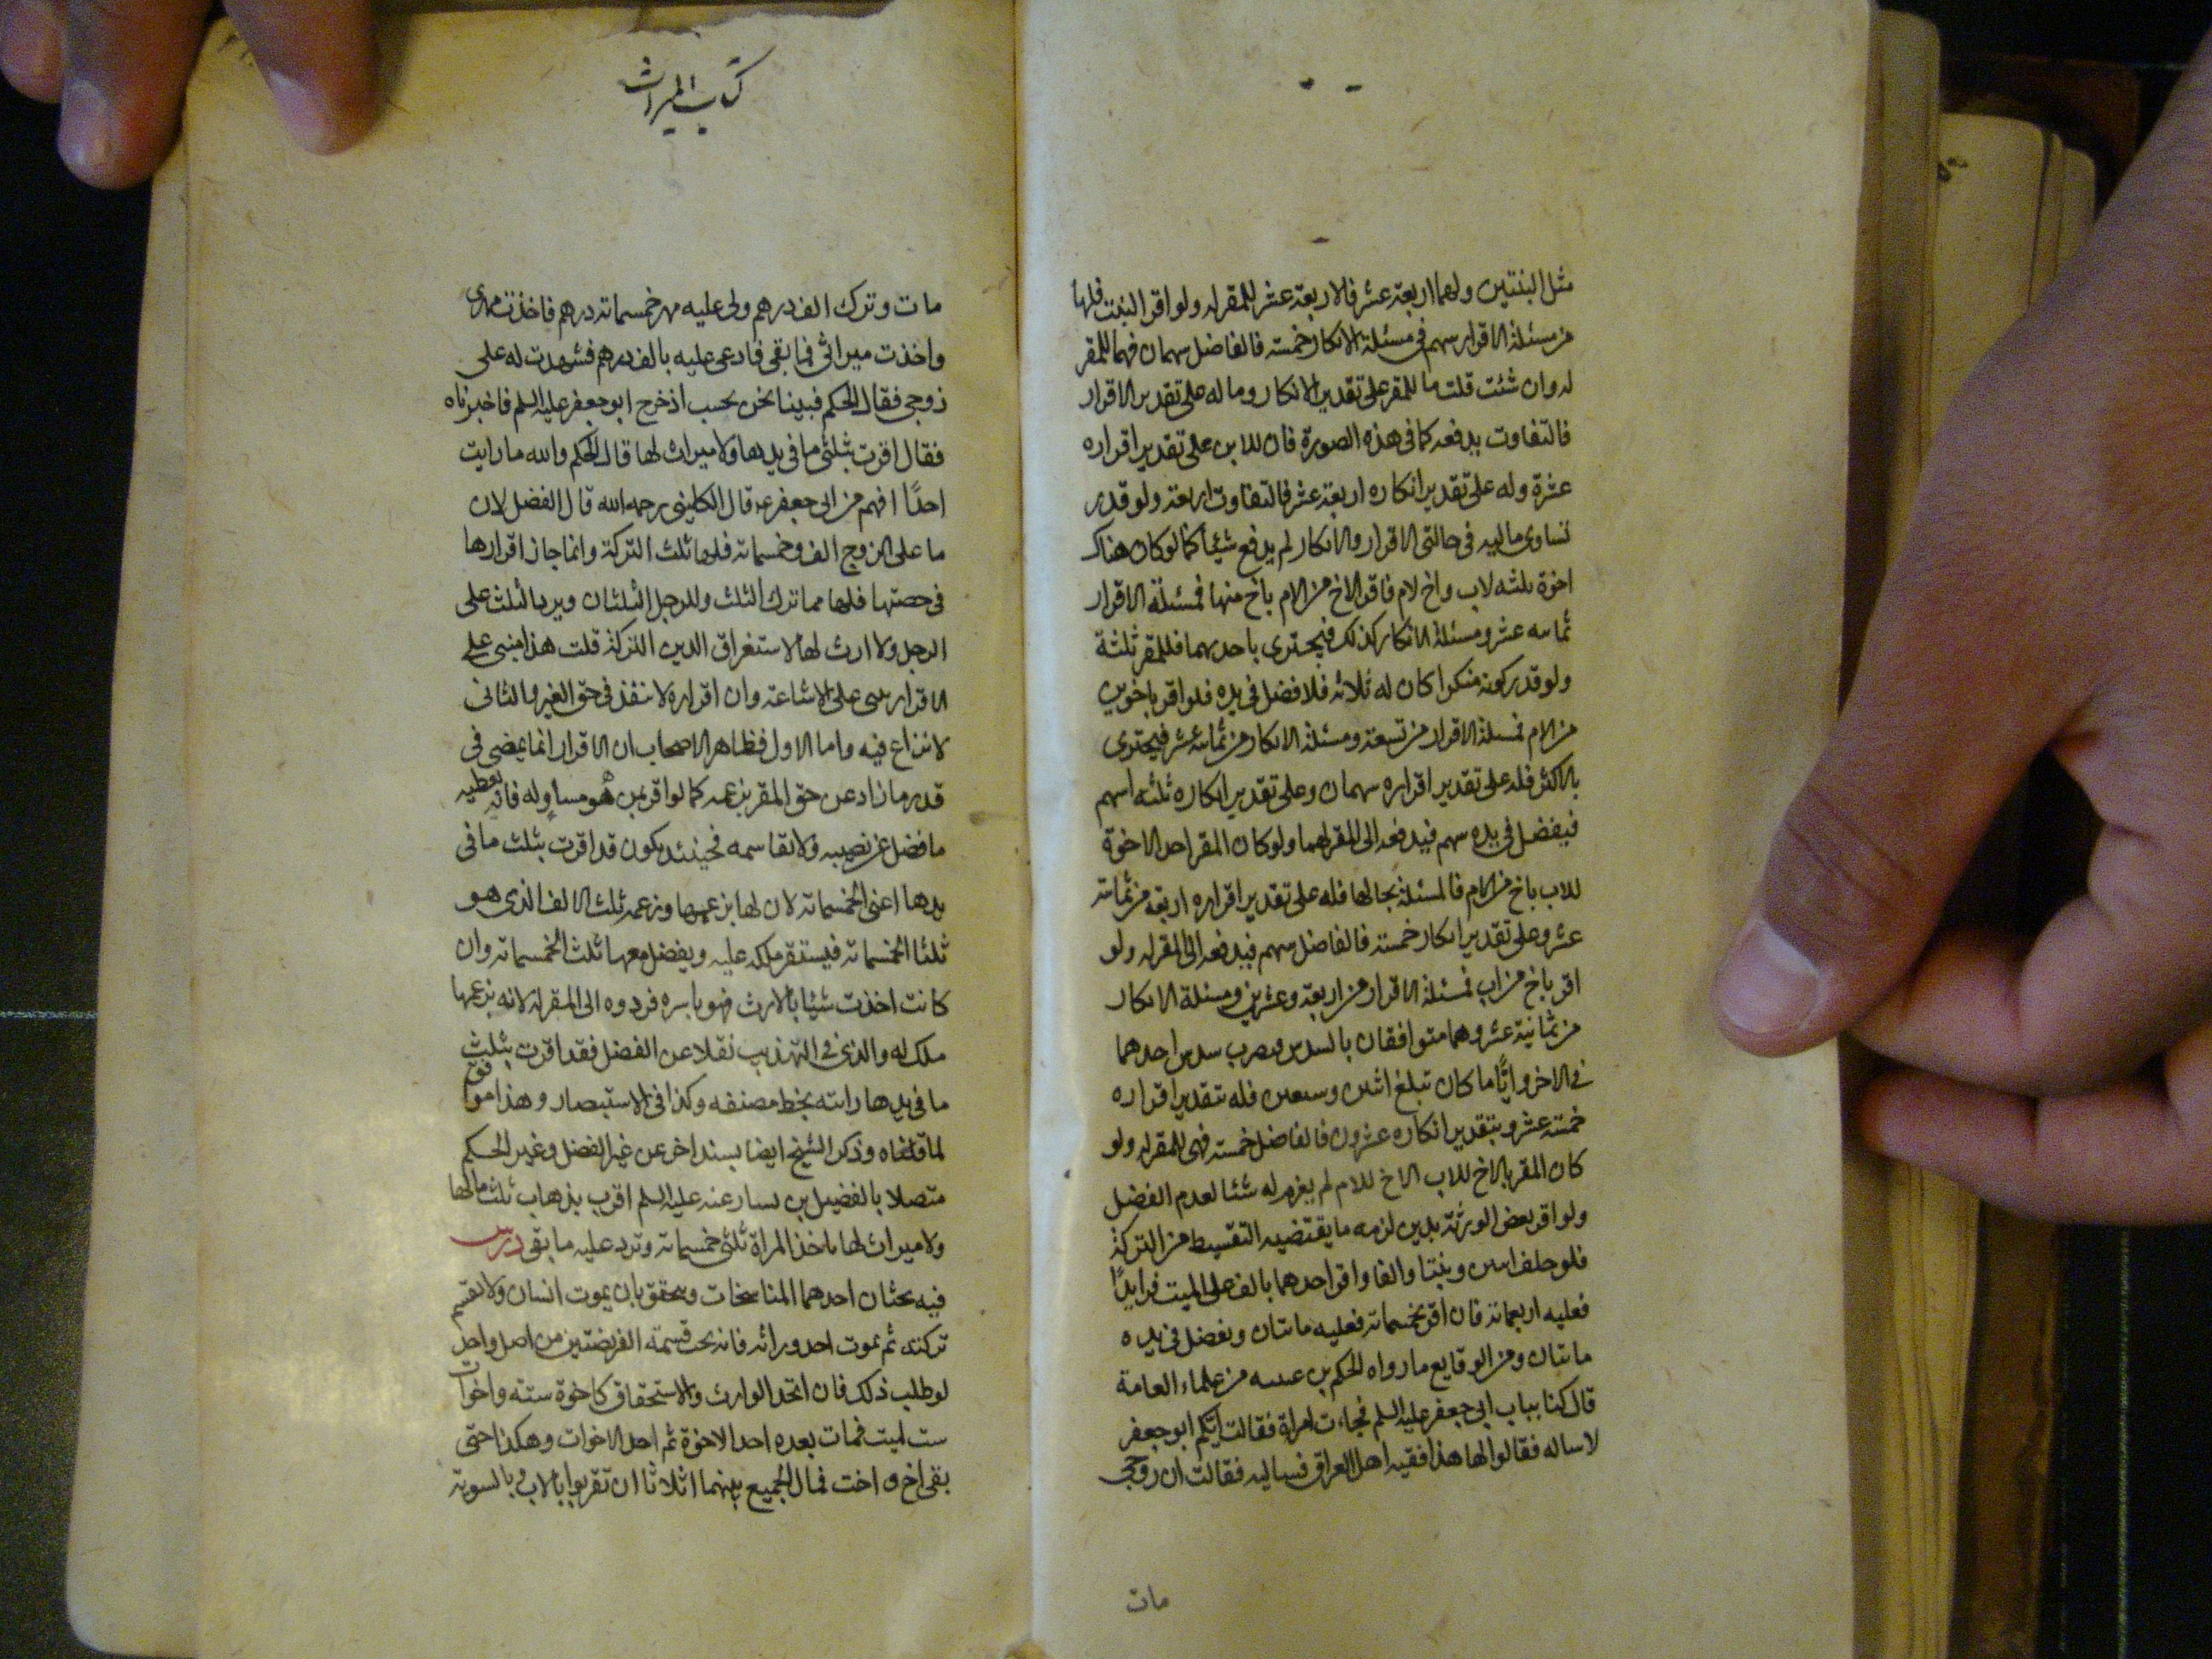 مثل البنتين ولهما اربعة عشر فالاربعة عشر للمقر له ولو اقر البنت فلها
من مسئلة الاقرار سهم في مسئلة الانكار خمسة فالفاضل سهمان فهما للمقر
له وان شئت قلت ما للمقر على تقدير الانكار وما له على تقدير الاقرار
فالتفاوت يدفعه كما في هذه الصورة فان للابن على تقدير اقراره
عشرة وله على تقدير انكاره اربعة عشر فالتفاوت اربعة ولو قدر
تساوى ماليه في حالتي الاقرار والانكار لم يدفع شيئا كما لو كان هناك
اخوة ثلثه لاب واخ لام فاقر الاخ من الام باخ منها فمسئلة الاقرار
ثمانيه عشر ومسئلة الانكار كذلك فيجتزى باحديهما فللمقر ثلثة
ولو قدر كونه منكرا كان له ثلاثه فلا فضل في يده فلو اقر باخوين
من الام فمسئلة الاقرار من تسعة ومسئلة الانكار من ثمانيه عشر فيجتزى
بالاكثر فله على تقدير اقراره سهمان وعلى تقدير انكاره ثلثه اسهم
فيفضل في يده سهم فيدفعه الى المقر لهما ولو كان المقر احد الاخوة
للاب باخ من الام فالمسئلة بحالها فله على تقدير اقراره اربعة من ثمانية
عشر وعلى تقدير انكار خمسة فالفاضل سهم فيدفعه الى المقر له ولو
اقر باخ من اب فمسئلة الاقرار من اربعة وعشرين ومسئلة الانكار
من ثمانية عشر وهما متوافقان بالسدس فيضرب سدس احدهما
في الاخر وايًّا ما كان تبلغ اثنين وسبعين فله بتقدير اقراره
خمسة عشر وبتقدير انكاره عشرون فالفاضل خمسة فهى للمقر له ولو
كان المقر بالاخ للاب الاخ للام لم يغرم له شئا لعدم الفضل
ولو اقر بعض الورثة بدين لزمه ما يقتضيه التقسيط من التركة
فلو خلف ابنين وبنتا والفا واقر احدهما بالف على الميت
فعليه اربعمائة فان اقر بخمسمائة فعليه مائتان ويفضل في يده
مائتان ومن الوقايع ما رواه الحكم بن عيينه من علماء العامة
قال كنا بباب ابي جعفر عليه السلم فجاءت امراة فقالت ايكم ابو جعفر
لاساله فقالوا لها هذا فقيه اهل العراق فساليه فقالت ان زوجي
مات
كتاب الميراث
مات وترك الف درهم ولى عليه مهر خمسمائة درهم فاخذت مهرى
واخذت ميراثى فيما بقى فادعى عليه بالف درهم فشهدت له على
زوجى فقال الحكم فبينا نحن نحسب اذ خرج ابو جعفر عليه السلم فاخبرناه
فقال اقرت بثلثى ما في يديها ولا ميراث لها قال الحكم والله ما رايت
احدًا افهم من ابى جعفر عـ قال الكلينى رحمه الله قال الفضل لان
ما على الزوج الف وخمسمائة فلها ثلث التركة وانما جاز اقرارها
في حصتها فلها مما ترك الثلث وللرجل الثلثان ويرد الثلث على
الرجل ولا ارث لها لاستغراق الدين التركة قلت هذا مبنى على
الاقرار مبنى على الاشاعة وان اقراره لا ينفذ في حق الغير والثانى
لا نزاع فيه واما الاول فظاهر الاصحاب ان الاقرار انما يمضى فى
قدر ما زاد عن حق المقر بزعمه كما لو اقر بمن هو مساوٍ له فانه يعطيه
ما فضل عن نصيبه ولا يقاسمه فحينئذ يكون قد اقرت بثلث ما فى
يدها اعنى الخمسمائة لان لها بزعمها وزعمه ثلث الالف الذى هو
ثلثا الخمسمائة فيستقر ملكه عليه ويفضل معها ثلث الخمسمائة وان
كانت اخذت شيئا بالارث فهو باسره مردود الى المقر له لانه بزعمها
ملك له والذى في التهذيب نقلا عن الفضل فقد اقرت بثلث
ما في يدها رايته بخط مصنفه وكذا في الاستبصار وهذا موافق
لما قلناه وذكر الشيخ ايضا بسند اخر عن غير الفضل وغير الحكم
متصلا بالفضيل بن يسار عنه عليه السلم اقرت بذهاب ثلث مالها
ولا ميراث لها تاخذ المراة ثلثى خمسمائة وترد عليه ما بقى درس
فيه بحثان احدهما المناسخات ويتحقق بان يموت انسان ولا تقسم
تركته ثم يموت احد وراثه فانه يجب قسمة الفريضتين من اصل واحد
لو طلب ذلك فان اتحد الوارث والاستحقاق كاخوة سته واخوات
ست لميت فمات بعده احد الاخوة ثم احد الاخوات وهكذا حتى
بقى اخ واخت فمال الجميع بينهما اثلاثا ان تقربوا بالاب وبالسوية